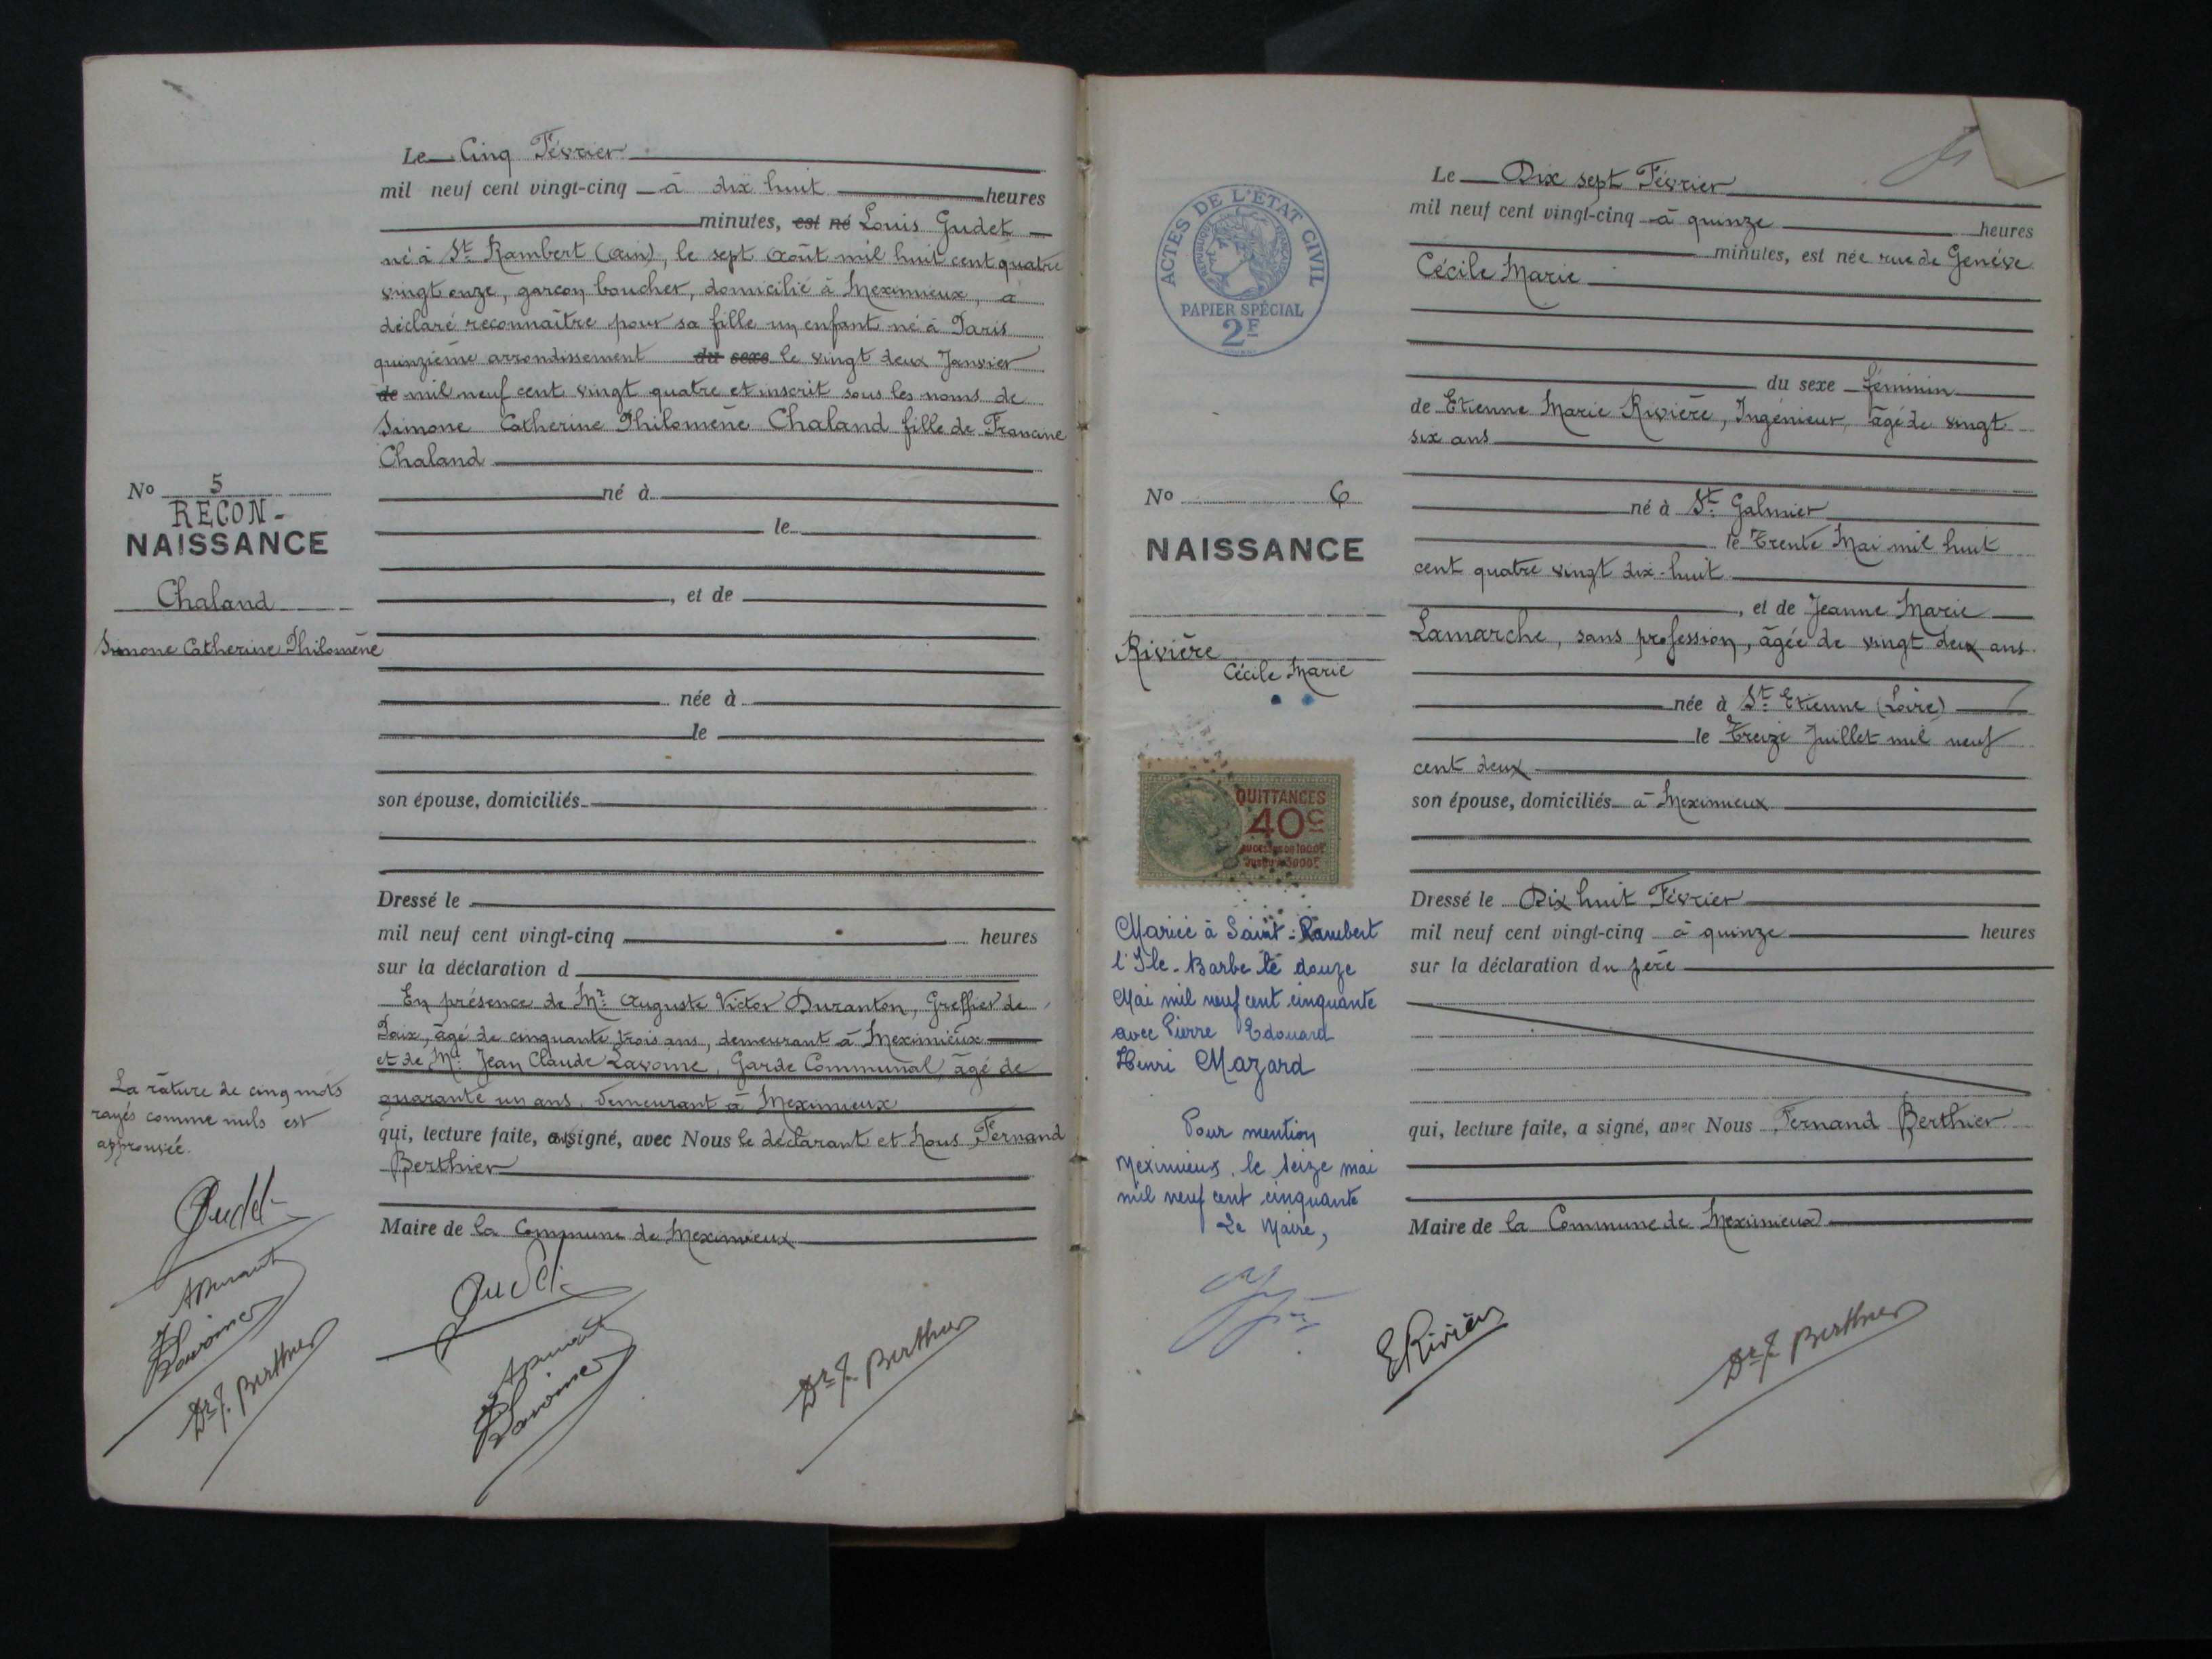 Le Cinq Février
mil neuf cent vingt-cinq à dix huit heures
minutes, est né Louis Gudet
né à St Rambert (Ain), le sept Août mil huit cent quatre
vingt onze, garçon boucher, domicilié à Meximieux, a
déclaré reconnaître pour sa fille un enfant né à Paris
quinzième arrondissement du sexe le vingt deux Janvier
de mil neuf cent vingt quatre et inscrit sous les noms de
Simone Catherine Philomène Chaland fille de Francine
Chaland
No 5
RECON-
NAISSANCE
Chaland
Simone Catherine Philomène
né à
le
, et de
née à
le
son épouse, domiciliés
Dressé le
mil neuf cent vingt-cinq heures
sur la déclaration d
En présence de Mr Auguste Victor Duranton, Greffier de
Paix, âgé de cinquante trois ans, demeurant à Meximieux
et de Mr Jean Claude Lavorne, Garde Communal, âgé de
quarante un ans, demeurant à Meximieux
qui, lecture faite, a signé, avec Nous le déclarant et Nous Fernand
Berthier
Maire de la Commune de Meximieux
La râture de cinq mots
rayés comme nuls est
approuvée.
Gudet
Lavorne
Dr F. Berthier
Gudet
Lavorne
Dr F. Berthier
ACTES DE L'ÉTAT CIVIL
RÉPUBLIQUE FRANÇAISE
PAPIER SPÉCIAL
2F
No 6
NAISSANCE
Rivière
Cécile Marie
QUITTANCES
40c
Mariée à Saint-Rambert
l'Ile-Barbe le douze
Mai mil neuf cent cinquante
avec Pierre Edouard
Henri Mazard
Pour mention
Meximieux, le seize mai
mil neuf cent cinquante
Le Maire,
Le Dix sept Février
mil neuf cent vingt-cinq à quinze heures
minutes, est née rue de Genève
Cécile Marie
du sexe féminin
de Etienne Marie Rivière, Ingénieur, âgé de vingt
six ans
né à St Galmier
le Trente Mai mil huit
cent quatre vingt dix-huit
, et de Jeanne Marie
Lamarche, sans profession, âgée de vingt deux ans
née à St Etienne (Loire)
le Treize Juillet mil neuf
cent deux
son épouse, domiciliés à Meximieux
Dressé le Dix huit Février
mil neuf cent vingt-cinq à quinze heures
sur la déclaration du père
qui, lecture faite, a signé, avec Nous Fernand Berthier
Maire de la Commune de Meximieux
E Rivière
Dr F. Berthier